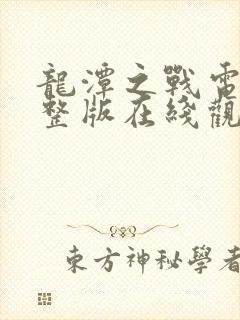 龍潭之戰電
整版在綫觀
東方神秘學者